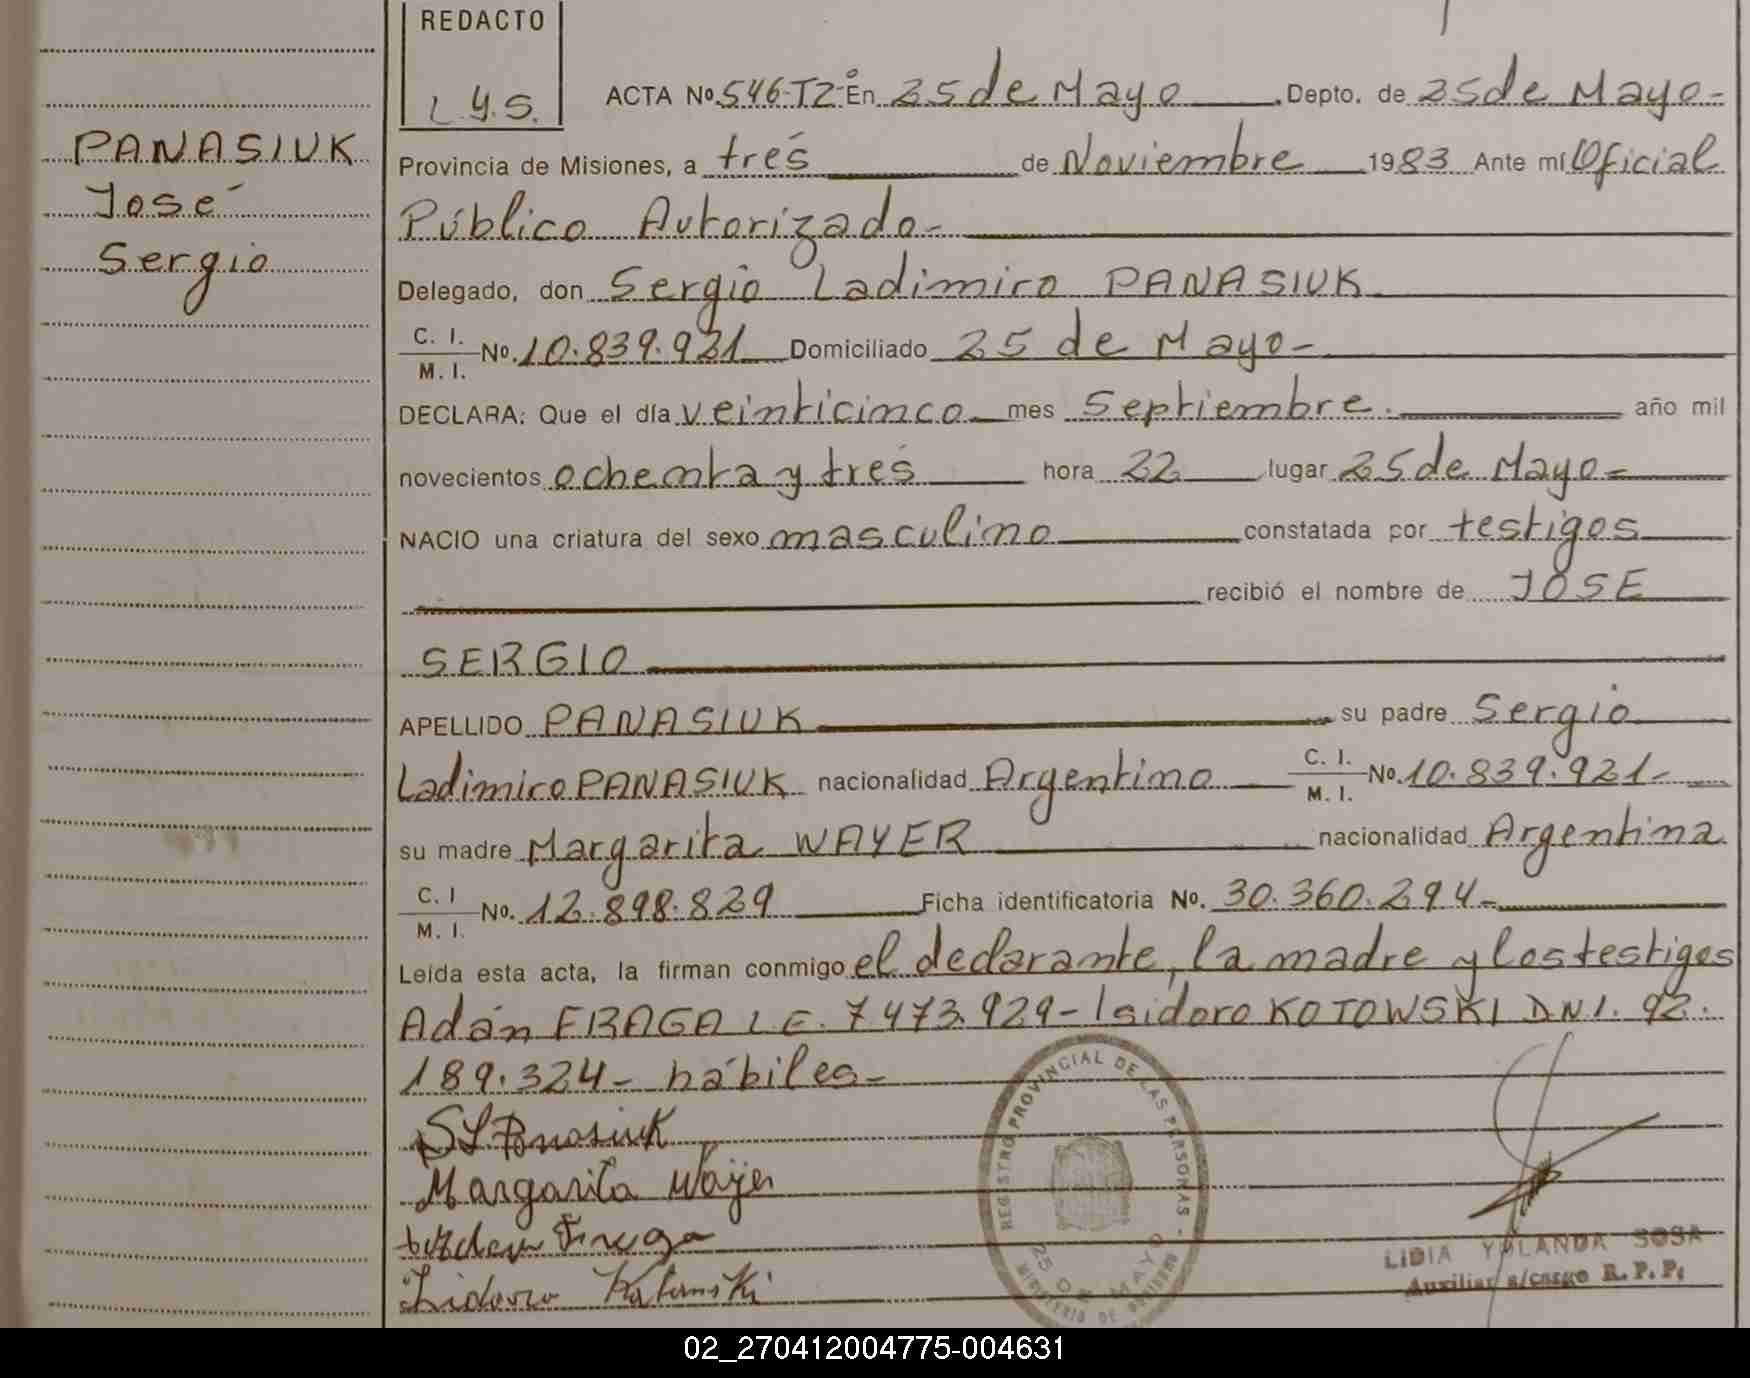 REDACTO
L.Y.S.
PANASIUK
José
Sergio
ACTA Nº 546-Tº2 En 25 de Mayo Depto. de 25 de Mayo-
Provincia de Misiones, a tres de Noviembre 1983 Ante mí Oficial
Público Autorizado-
Delegado, don Sergio Ladimiro PANASIUK
C. I.
M. I. Nº. 10.839.921 Domiciliado 25 de Mayo-
DECLARA: Que el día veinticinco mes Septiembre. año mil
novecientos ochenta y tres hora 22 lugar 25 de Mayo-
NACIO una criatura del sexo masculino constatada por testigos
recibió el nombre de JOSE
SERGIO
APELLIDO PANASIUK su padre Sergio
Ladimiro PANASIUK nacionalidad Argentino C. I.
M. I. Nº. 10.839.921-
su madre Margarita WAYER nacionalidad Argentina
C. I
M. I. Nº. 12.898.829 Ficha identificatoria Nº. 30.360.294-
Leída esta acta, la firman conmigo el declarante, la madre y los testigos
Adán FRAGA L.E. 7473.929- Isidoro KOTOWSKI D.N.I. 92.
189.324- hábiles-
SL Panasiuk
Margarita Wayer
Fraga
REGISTRO PROVINCIAL DE LAS PERSONAS -
25 DE MAYO
MINISTERIO DE GOBIERNO
LIDIA YOLANDA SOSA
Auxiliar a/cargo R. P. P.
02_270412004775-004631